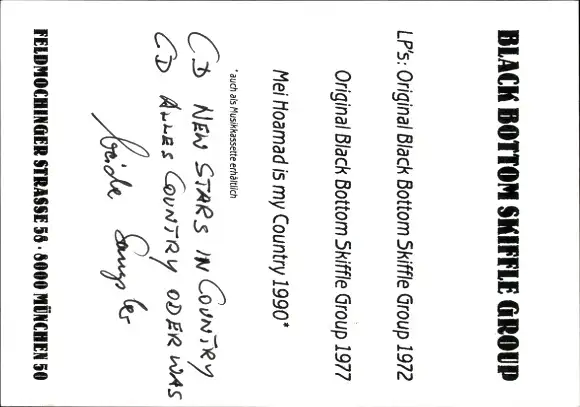 BLACK BOTTOM SKIFFLE GROUP
LP's: Original Black Bottom Skiffle Group 1972
Original Black Bottom Skiffle Group 1977
Mei Hoamad is my Country 1990*
*auch als Musikkassette erhältlich
CD NEW STARS IN COUNTRY
CD ALLES COUNTRY ODER WAS
beide Sampler
FELDMOCHINGER STRASSE 58 · 8000 MÜNCHEN 50